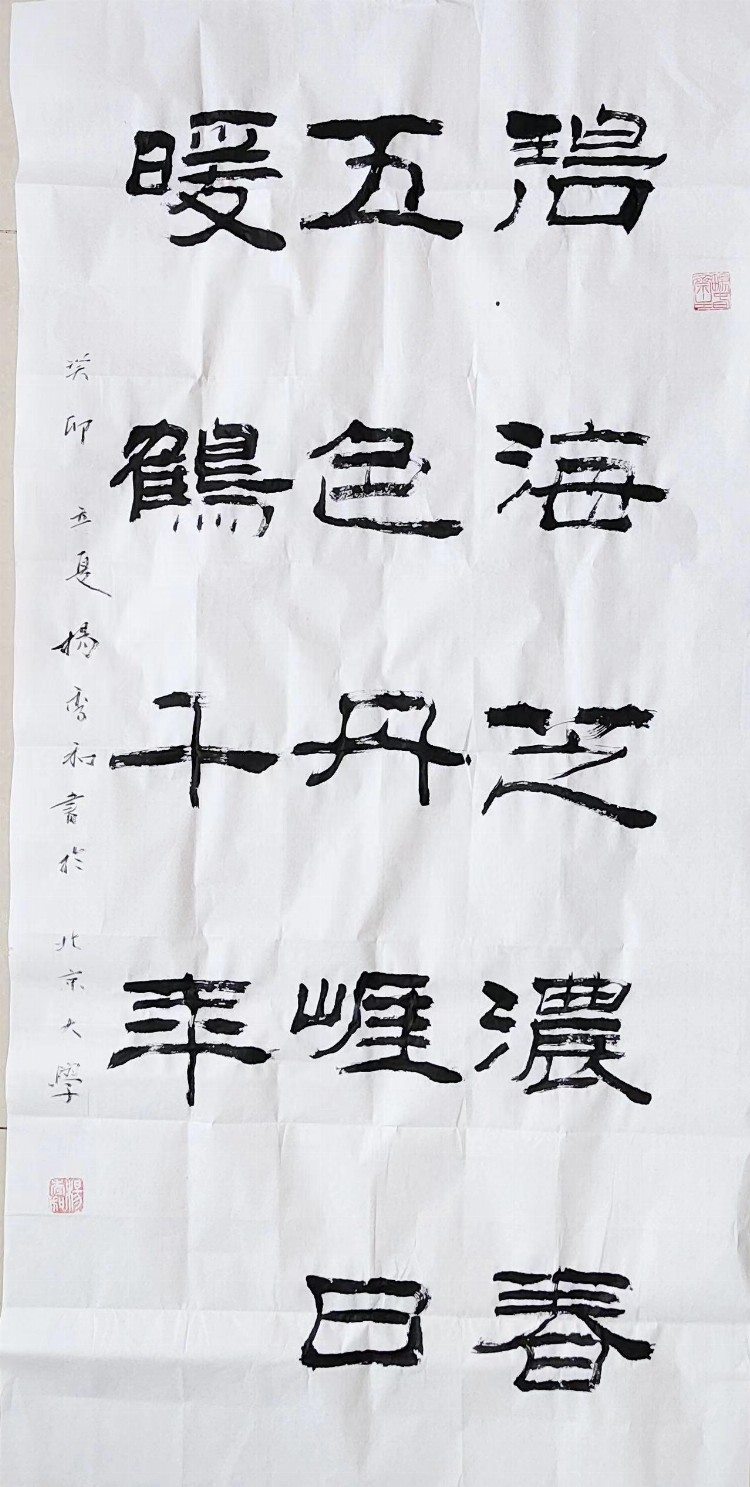 碧海芝濃春
五色丹崕日
暖鶴千年
癸卯 立夏 楊和書於 北京大學